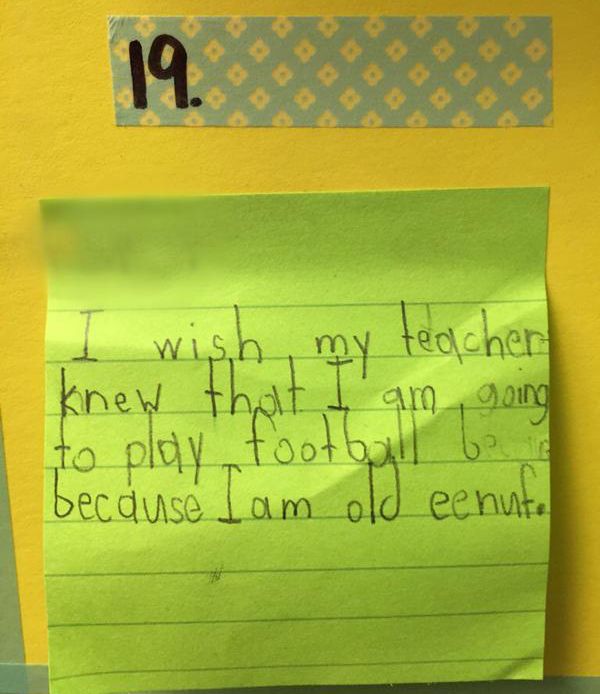 19.
I wish my teacher
knew that I am going
to play football
because I am old eenuf.